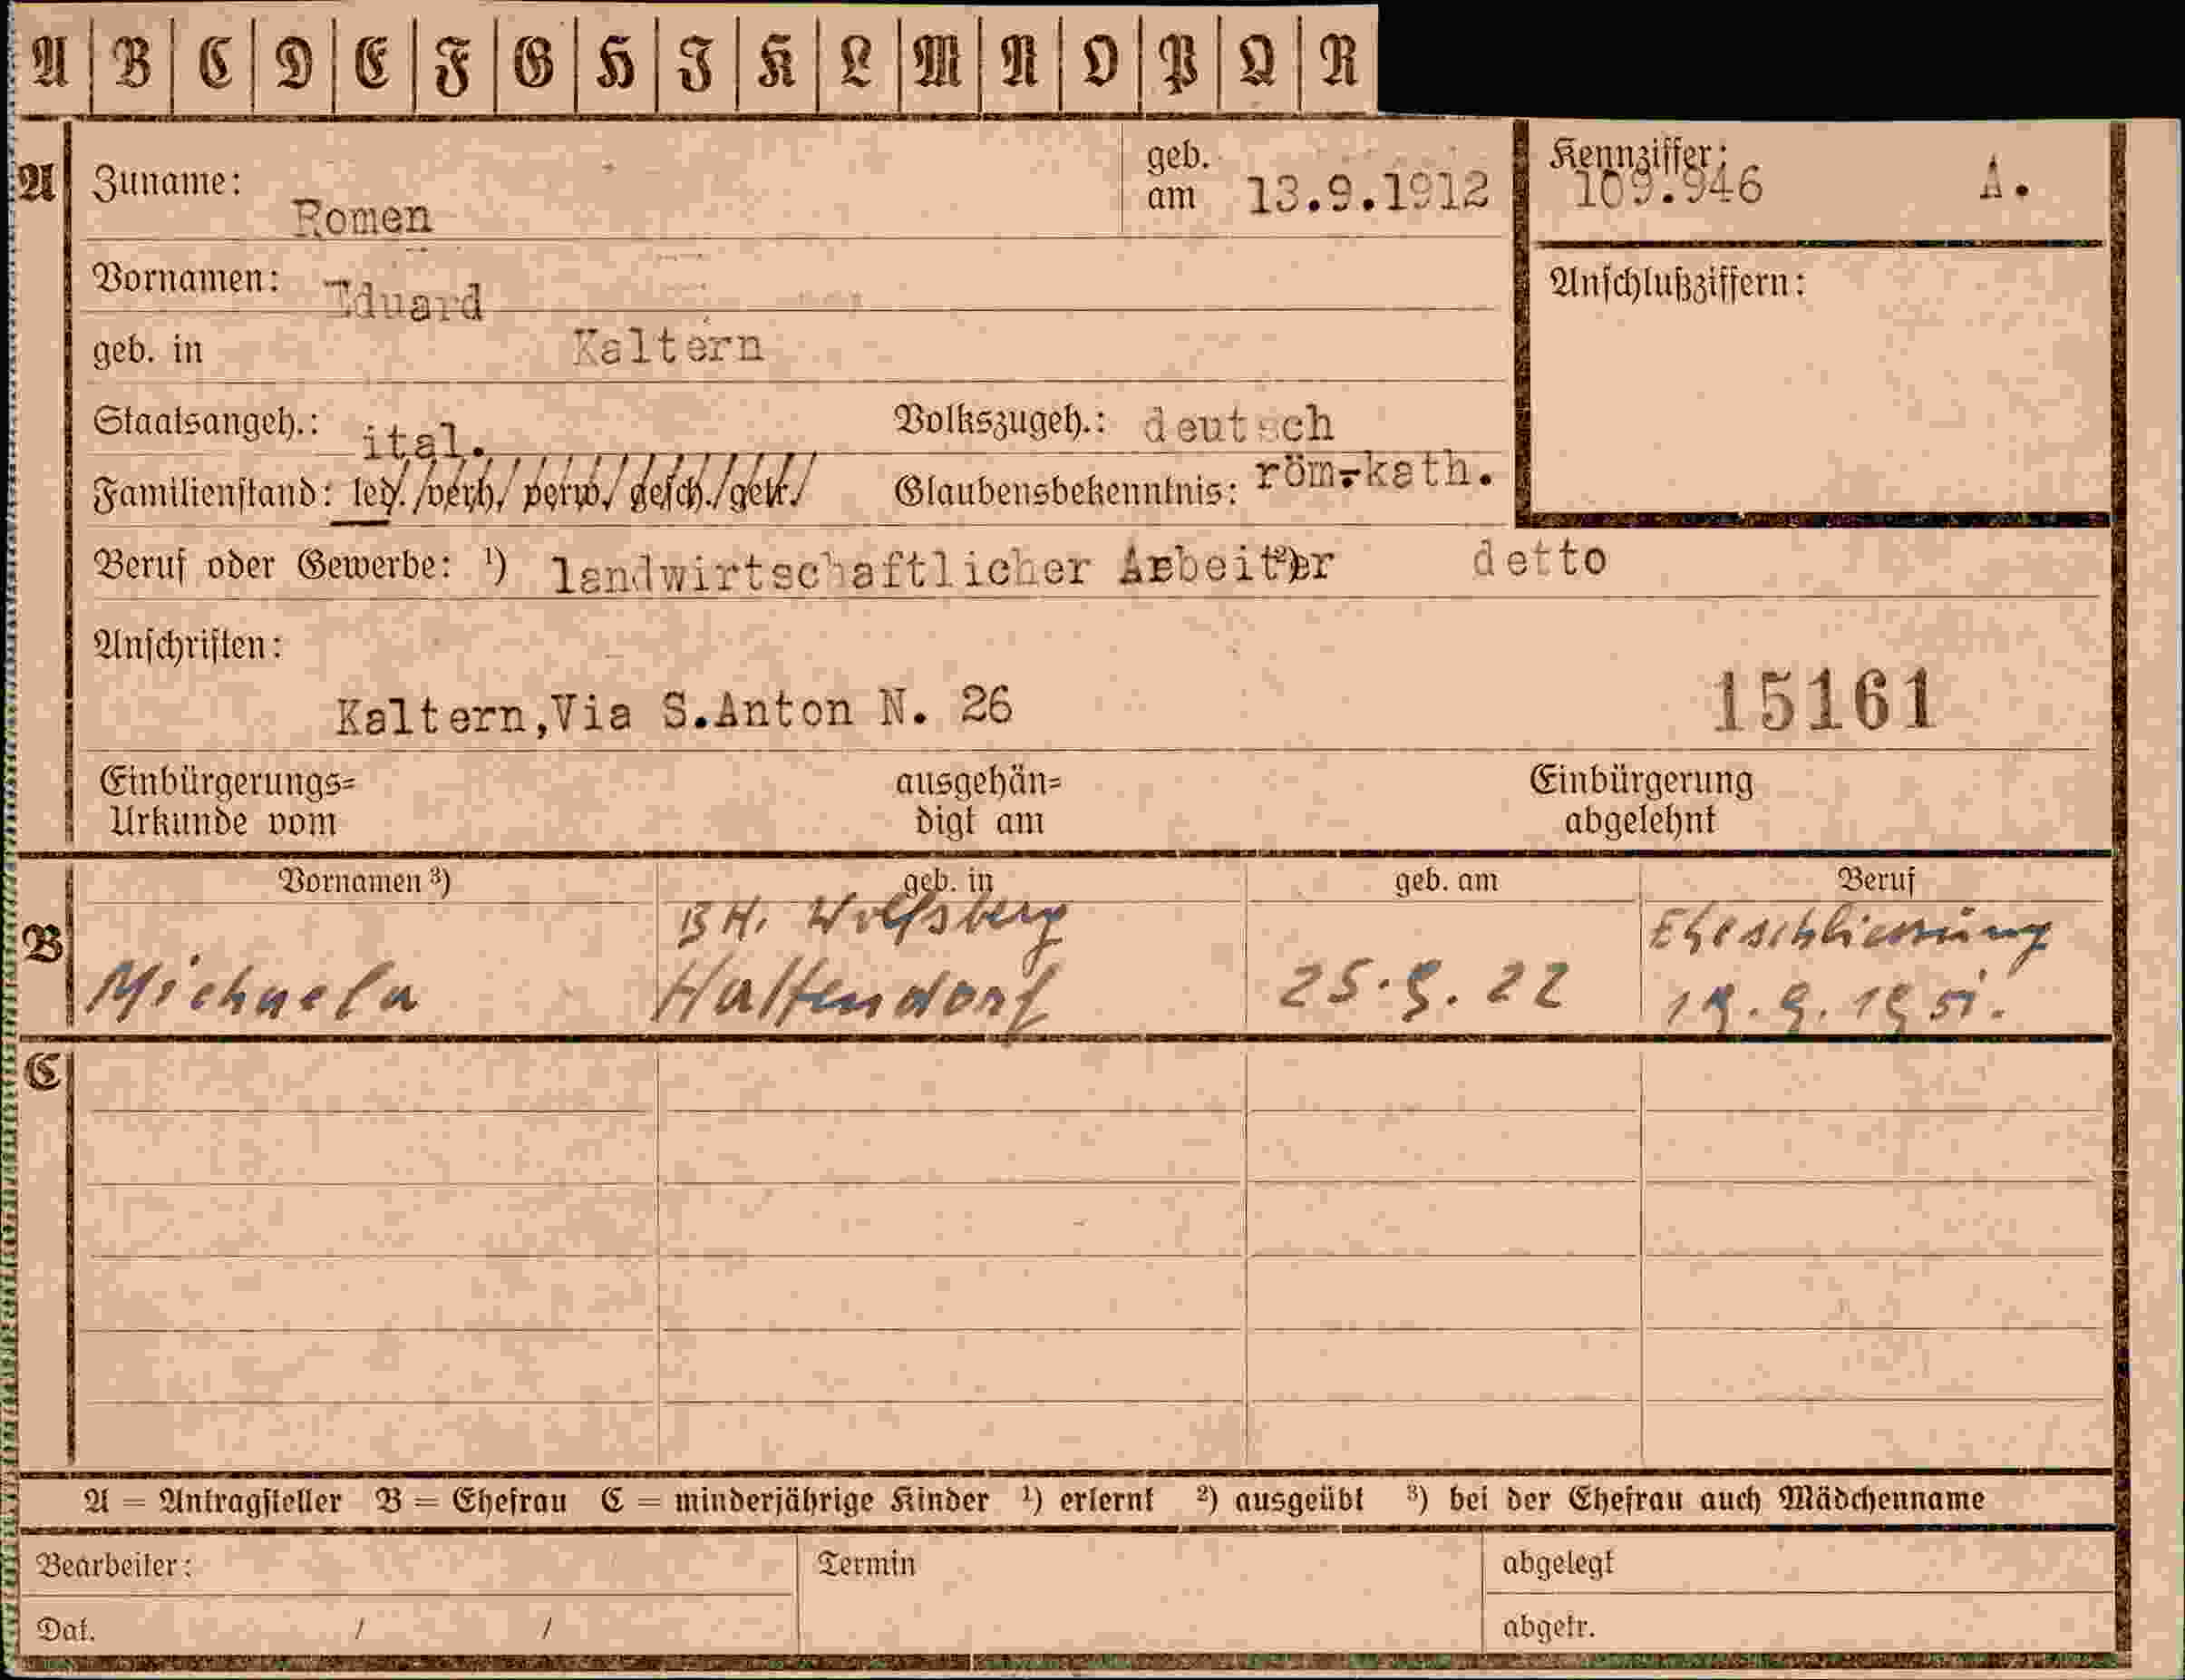 A B C D E F G H I K L M N O P Q R
A Zuname: Romen geb. am 13.9.1912 Kennziffer: 109.946 A.
Vornamen: Eduard Anschlußziffern:
geb. in Kaltern
Staatsangeh.: ital. Volkszugeh.: deutsch
Familienstand: led./verh./verw./gesch./getr./ Glaubensbekenntnis: röm-kath.
Beruf oder Gewerbe: ¹) landwirtschaftlicher Arbeiter ²) detto
Anschriften:
Kaltern,Via S.Anton N. 26 15161
Einbürgerungs= ausgehän= Einbürgerung
Urkunde vom digt am abgelehnt
Vornamen ³) geb. in geb. am Beruf
B BH. Wolfsberg Eheschliessung
Michaela Hattendorf 25.9.22 19.9.1951.
C
A = Antragsteller B = Ehefrau C = minderjährige Kinder ¹) erlernt ²) ausgeübt ³) bei der Ehefrau auch Mädchenname
Bearbeiter: Termin abgelegt
Dat. / / abgetr.